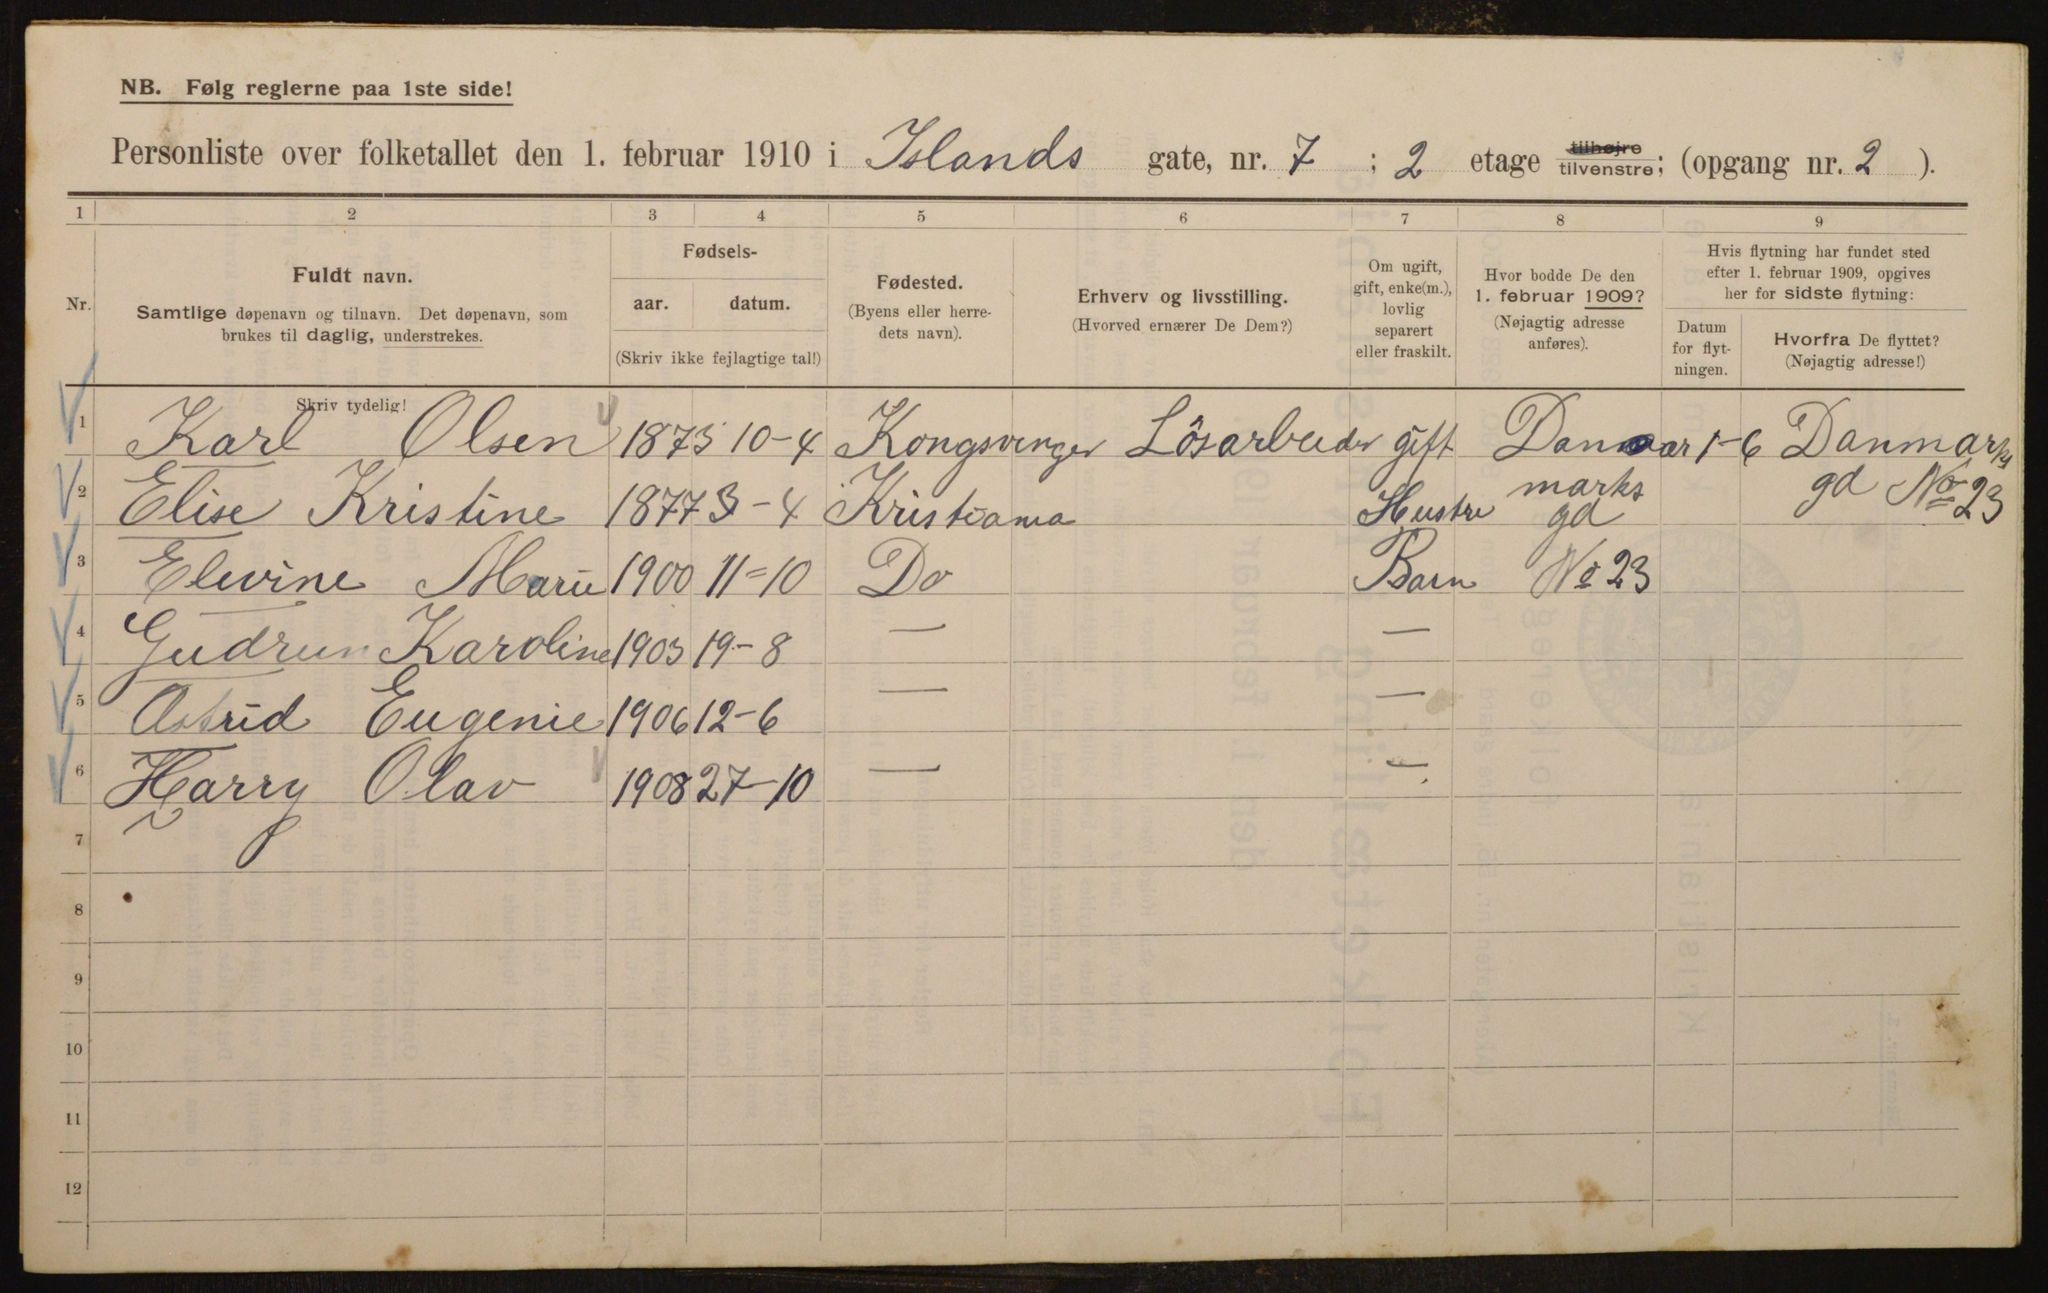 NB. Følg reglerne paa 1ste side!
Personliste over folketallet den 1. februar 1910 i Islands gate, nr. 7 ; 2 etage tilhøjre tilvenstre; (opgang nr. 2 ).
1 2 3 4 5 6 7 8 9
Nr.
Fuldt navn.
Samtlige døpenavn og tilnavn. Det døpenavn, som
brukes til daglig, understrekes.
Fødsels-
aar. datum.
(Skriv ikke fejlagtige tal!)
Fødested.
(Byens eller herre-
dets navn).
Erhverv og livsstilling.
(Hvorved ernærer De Dem?)
Om ugift,
gift, enke(m.),
lovlig
separert
eller fraskilt.
Hvor bodde De den
1. februar 1909?
(Nøjagtig adresse
anføres).
Hvis flytning har fundet sted
efter 1. februar 1909, opgives
her for sidste flytning:
Datum
for flyt-
ningen.
Hvorfra De flyttet?
(Nøjagtig adresse!)
Skriv tydelig!
1 Karl Olsen 1873 10-4 Kongsvinger Lösarbeider gift Dan 1-6 Danmarks
2 Elise Kristine 1877 3-4 Kristiania Hustru marks gd gd No 23
3 Elevine Marie 1900 11=10 Do Barn No 23
4 Gudrun Karoline 1903 19-8 — —
5 Astrid Eugenie 1906 12-6 — —
6 Harry Olav 1908 27-10 — —
7
8
9
10
11
12